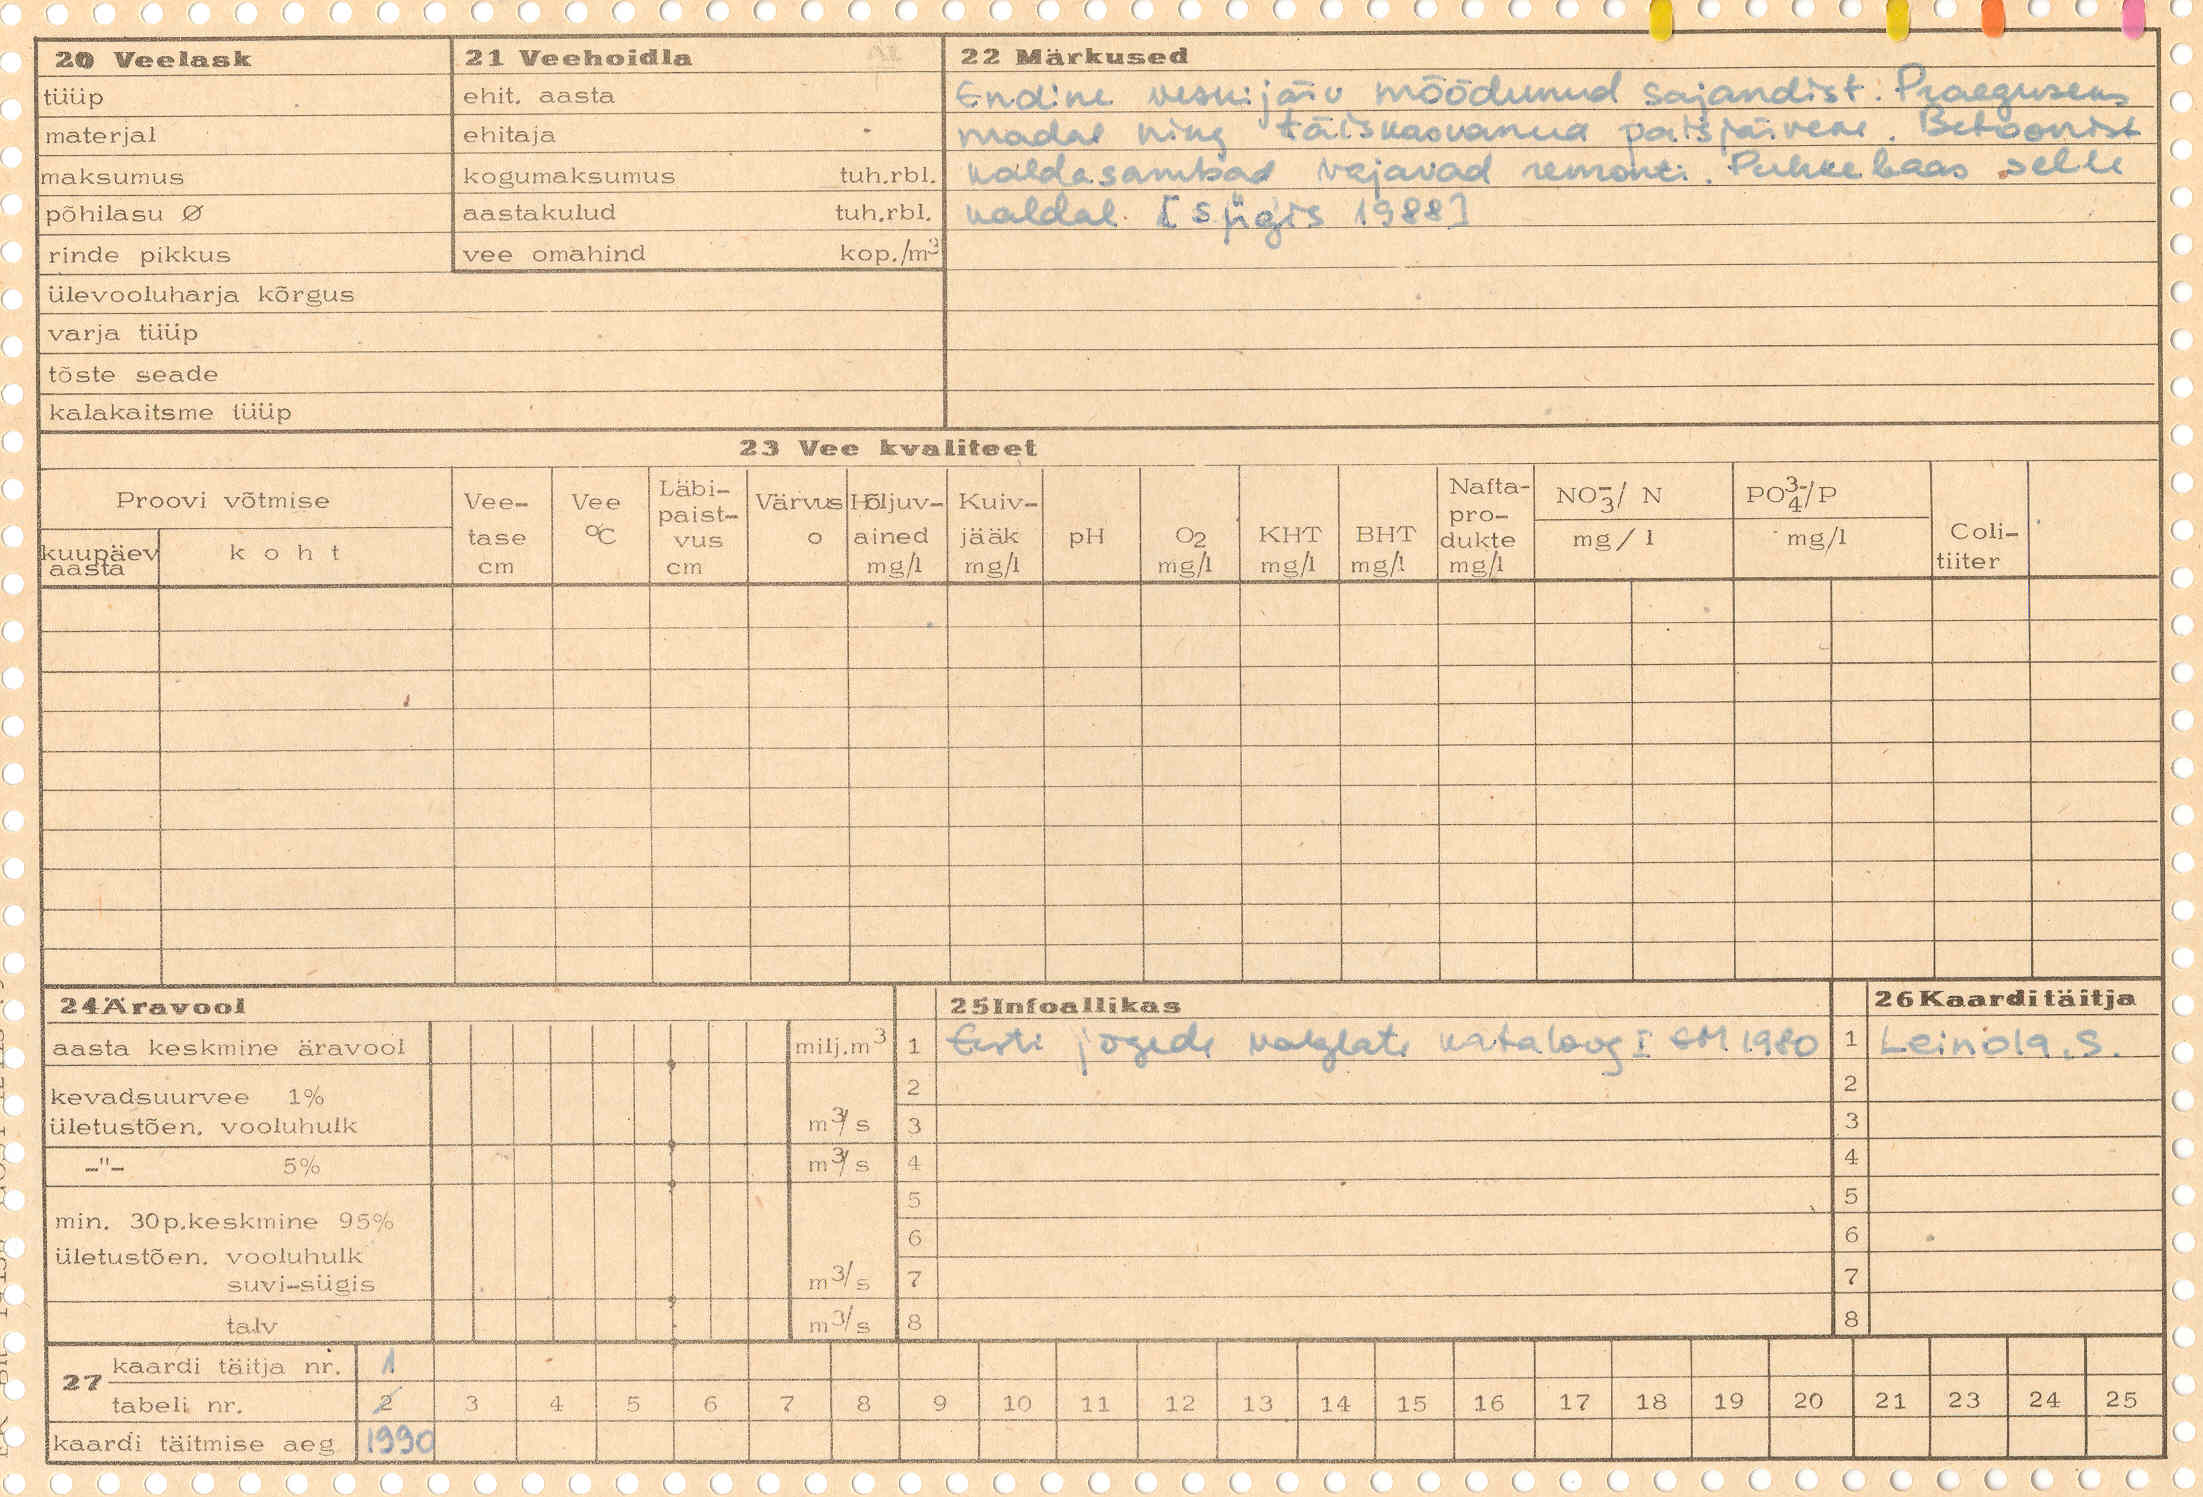 20 Veelask
tüüp
materjal
maksumus
põhilasu Ø
rinde pikkus
ülevooluharja kõrgus
varja tüüp
tõste seade
kalakaitsme tüüp
21 Veehoidla
ehit. aasta
ehitaja
kogumaksumus tuh.rbl.
aastakulud tuh.rbl.
vee omahind kop./m³
22 Märkused
Endine veskijärv möödunud sajandist. Praeguseks
madal ning täiskasvanud paisjärveke. Betoonist
kaldasambad vajavad remonti. Puhkebaas selle
kaldal. [sügis 1988]
23 Vee kvaliteet
Proovi võtmise
kuupäev aasta
koht
Vee-tase cm
Vee °C
Läbi-paist-vus cm
Värvus o
Hõljuv-ained mg/l
Kuiv-jääk mg/l
pH
O2 mg/l
KHT mg/l
BHT mg/l
Nafta-pro-dukte mg/l
NO3⁻/ N mg/l
PO4³⁻/P mg/l
Coli-tiiter
24 Äravool
aasta keskmine äravool milj.m³
kevadsuurvee 1%
ületustõen. vooluhulk m³/s
-"- 5% m³/s
min. 30p.keskmine 95%
ületustõen. vooluhulk
suvi-sügis m³/s
talv m³/s
25 Infoallikas
1 Eesti jõgede valglate kataloog I EM 1980
2
3
4
5
6
7
8
26 Kaardi täitja
1 Leinola, S.
2
3
4
5
6
7
8
27 kaardi täitja nr. 1
tabeli nr. 2 3 4 5 6 7 8 9 10 11 12 13 14 15 16 17 18 19 20 21 23 24 25
kaardi täitmise aeg 1990